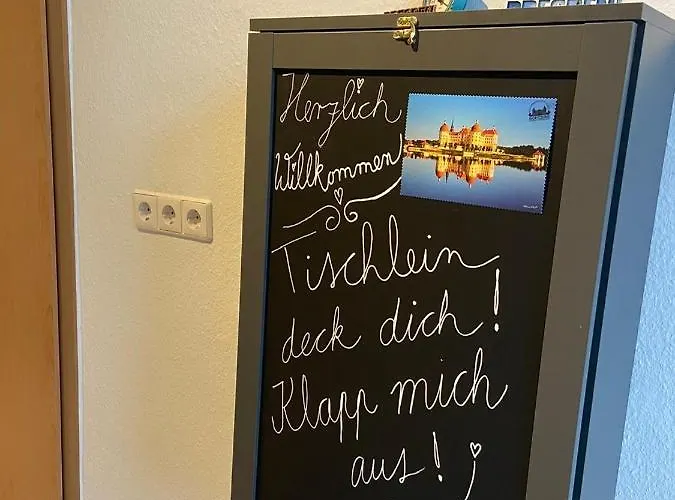 Herzlich
Willkommen
Tischlein
deck dich!
Klapp mich
aus!